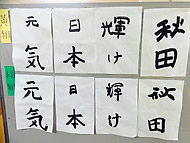 黄組
元気
日本
輝け
秋田
元気
日本
輝け
秋田